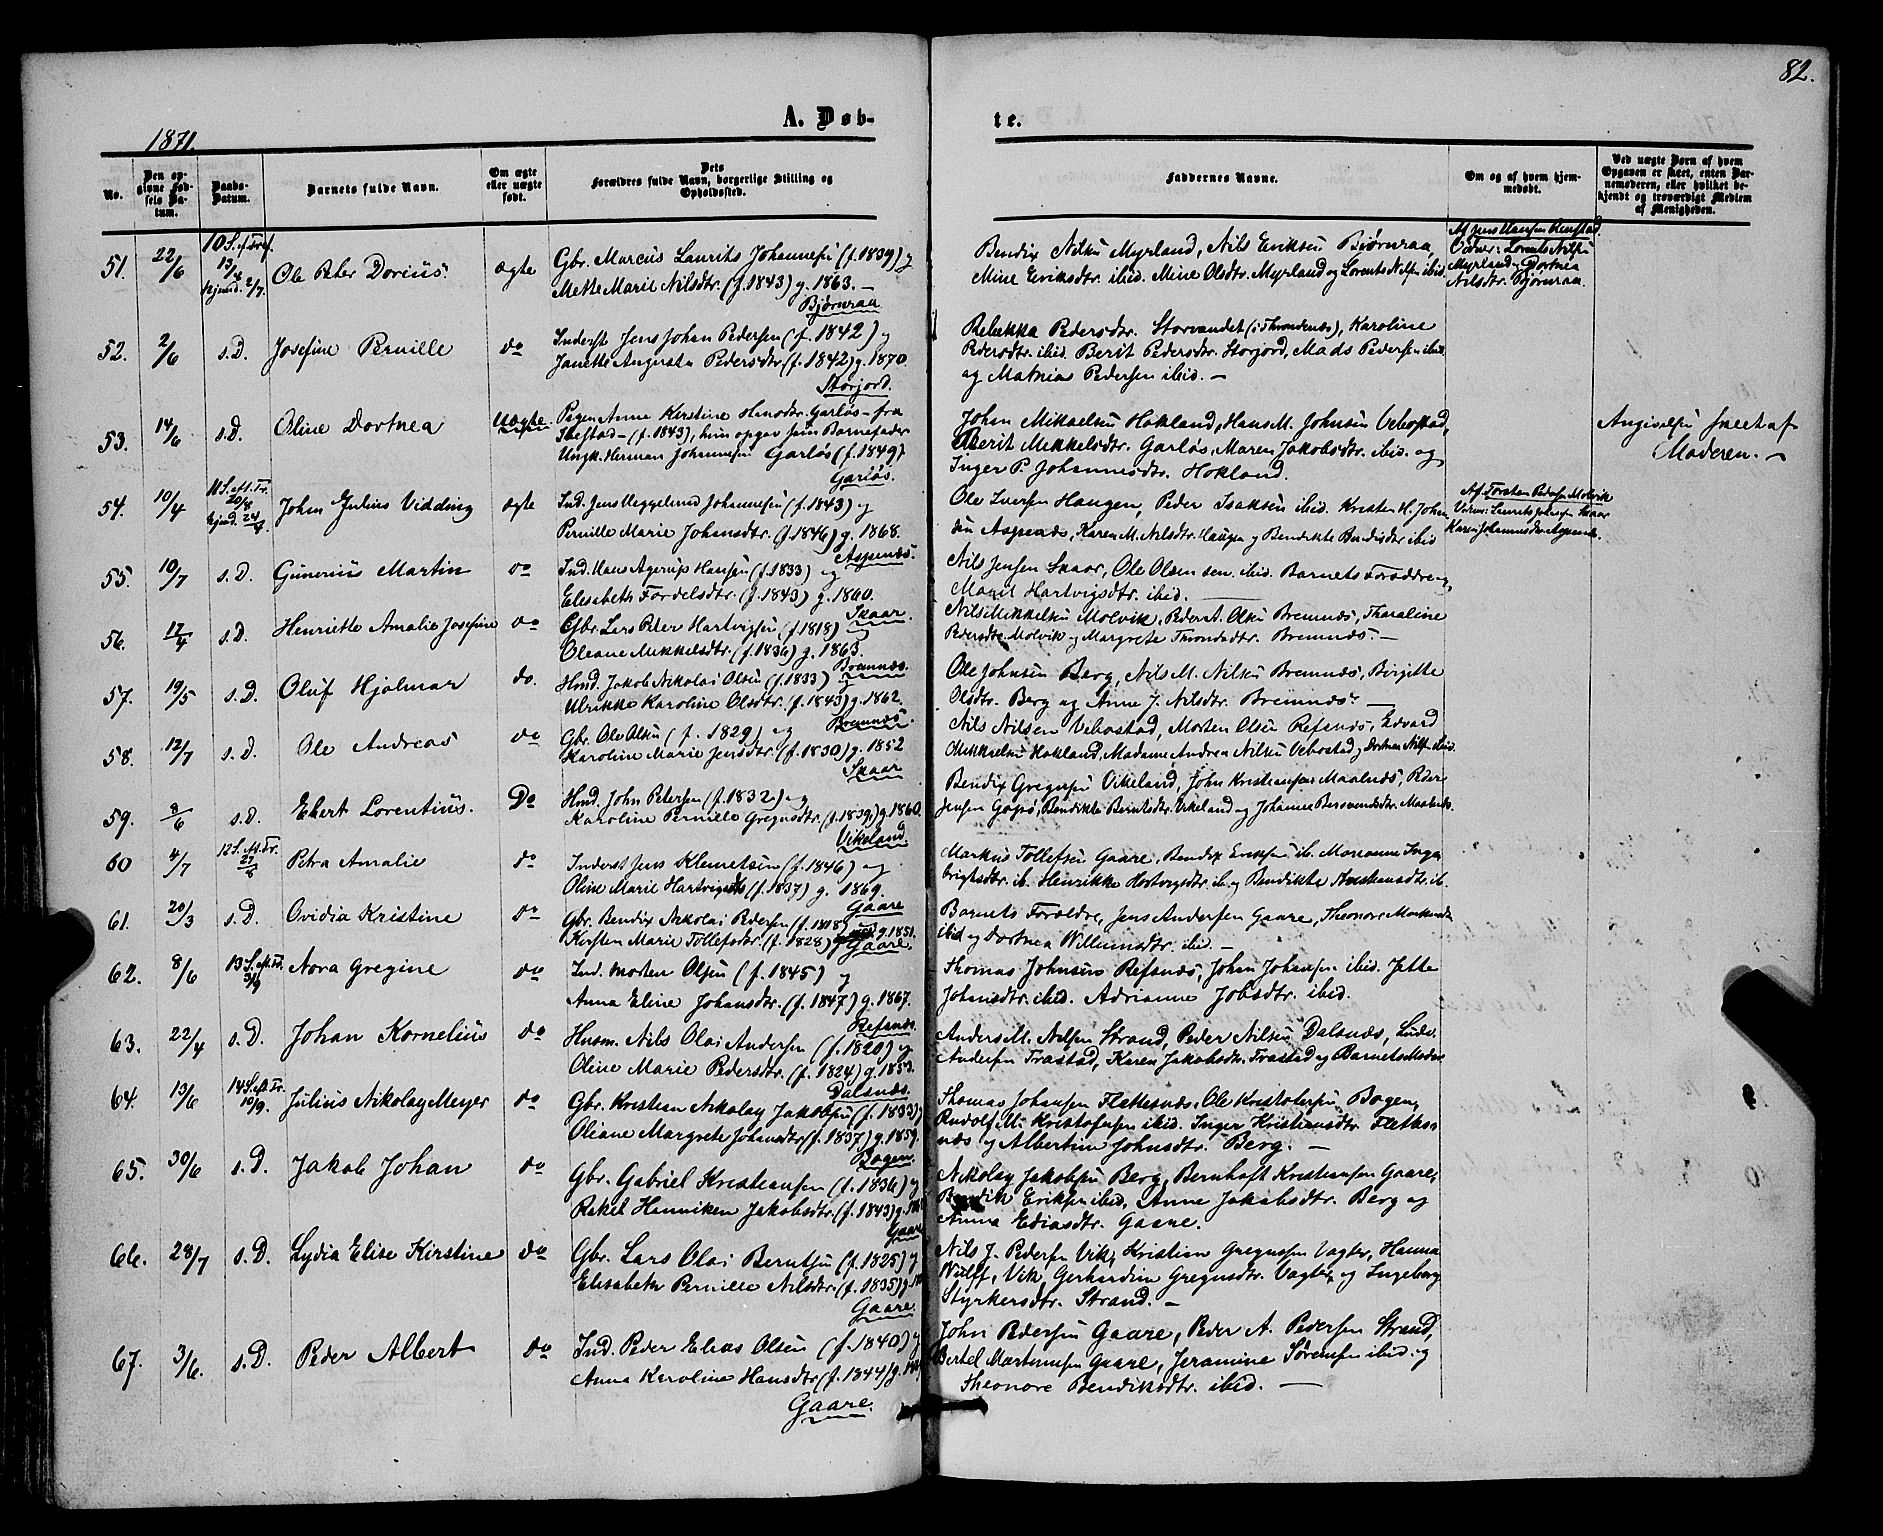 82.
A. Døb-
te.
1871.
No.
Den op-
givne Fød-
sels Da-
tum.
Daabs-
Datum.
Barnets fulde Navn.
Om ægte
eller uægte
født.
Dets
Forældres fulde Navn, borgerlige Stilling og
Opholdssted.
Faddernes Navne.
Om og af hvem hjem-
medøbt.
Ved uægte Børn af hvem
Opgaven er skeet, enten Bar-
nemoderen, eller hvilket be-
kjendt og troværdigt Medlem
af Menigheden.
51. 22/6 10 S. e. Tref. 13/4 hjemd. 2/7. Ole Peter Dorius. ægte
Gbr. Marcus Laurits Johannesen (f. 1839) og
Mette Marie Nilsdtr. (f. 1843) g. 1863. —
Bjørnraa
Bendix Nilsen Myrland, Nils Eriksen Bjørnraa,
Mine Eriksdtr. ibid. Mine Olsdtr. Myrland og Lorents Nilsen ibid.
Af Jens Hansen Renstad.
Vidner: Lorents Nilsen
Myrland og Dortnea
Nilsdtr. Bjørnraa.
52. 2/6 s. D. Josefine Pernille do
Inderst Jens Johan Pedersen (f. 1842) og
Janette Augusta Pedersdtr. (f. 1842) g. 1870.
Storjord.
Rebekka Pedersdtr. Storvandet (i Throndenæs), Karoline
Pedersdtr. ibid. Berit Pedersdtr. Storjord, Mads Pedersen ibid.
og Mathias Pedersen ibid. —
53. 14/6 s. D. Oline Dortnea Uægte.
Pigen Anne Kirstine Hansdtr. Garløs — fra
Ibestad — (f. 1843), hun opgav som Barnefader
Ungk. Herman Johannesen Garløs (f. 1849)
Garløs.
Johan Mikaelsen Hokland, Hans M. Johnsen Vebostad,
Berit Mekkelsdtr. Garløs, Maren Jakobsdtr. ibid. og
Inger P. Johannesdtr. Hokland.
Angivelsen skeet af
Moderen. —
54. 10/4 11 S. e. Tr. 20/8 hjemd. 24/4 Johan Julius Vidding ægte
Ind. Jens Heggelund Johannesen (f. 1843) og
Pernille Marie Johansdtr. (f. 1846) g. 1868.
Aspenæs.
Ole Iversen Haugen, Peder Isaksen ibid. Kristen H. Johan
sen Aspenæs, Karen M. Nilsdtr. Haugen og Bendikte Bendixdtr ibid
Af Torsten Pedersen Molvik
Karen Johannesdtr. Aspenæs.
55. 10/7 s. D. Gunerius Martin do
Ind. Hans Agerup Hansen (f. 1833) og
Elisabeth Fordelsdtr. (f. 1843) g. 1860.
Skaar.
Nils Jensen Skaar, Ole Olsen sen. ibid. Barnets Forældre og
Marit Hartvigsdtr. ibid.
56. 17/4 s. D. Henriette Amalie Josefine do
Gbr. Lars Peter Hartvigsen (f. 1818) og
Oleane Mikkelsdtr. (f. 1836) g. 1863.
Bremnæs.
Nils Mikkelsen Molvik, Peder A. Olsen Bremnæs, Tharaline
Pedersdtr. Molvik og Margrete Trondsdtr. Bremnæs. —
57. 19/5 s. D. Oluf Hjalmar do.
Hmd. Jakob Nikolai Olsen (f. 1833) og
Ulrikke Karoline Olsdtr. (f. 1843) g. 1862.
Bremnæs.
Ole Johnsen Berg, Nils M. Nilsen Bremnæs, Birgitte
Olsdtr. Berg og Anne J. Nilsdtr. Bremnæs. —
58. 12/7 s. D. Ole Andreas do
Gbr. Ole Olsen (f. 1829) og
Karoline Marie Jensdtr. (f. 1830) g. 1852
Skaar
Nils Nilsen Vebostad, Morten Olsen Refsnæs, Edvard
Mikkelsen Hokland, Madame Andrea Nilsen Vebostad og Dortnea Nilsen ibid.
59. 8/6 s. D. Ebert Lorentius. Do
Hmd. John Petersen (f. 1832) og
Karoline Pernille Gregusdtr. (f. 1839) g. 1860.
Vikeland
Bendix Gregusen Vikeland, John Kristiansen Maalnæs, Peder
Jensen Gapø, Bendikte Berntsdtr. Vikeland og Johanna Bersvendsdtr. Maalnæs.
60 4/7 12 S. e. Tr. 27/8 Petra Amalie do
Inderst Jens Klemetsen (f. 1846) og
Oline Marie Hartvigsdtr (f. 1837) g. 1869.
Gaare
Markus Tollefsen Gaare, Bendix Eriksen ib. Marianne Inge
brigtsdtr. ib. Henrikke Hartvigsdtr ib. og Bendikte Kristiansdtr. ib.
61. 20/3 s. D. Ovidia Kristine do
Gbr. Bendix Nikolai Pedersen (f. 1818) og
Kirsten Marie Tollefsdtr. (f. 1828) g. 1851.
Gaare.
Barnets Forældre, Jens Andersen Gaare, Theonore Markusdtr
ibid og Dortnea Willumsdtr. ibid. —
62. 8/6 13 S. e. Tr. 3/9 Nora Gregine do
Ind. Morten Olsen (f. 1845) og
Anna Eline Johansdtr. (f. 1847) g. 1867.
Refsnæs.
Thomas Johnsen Refsnæs, Johan Johansen ibid. Jette
Johansdtr. ibid. Adrianne Jobsdtr. ibid.
63. 22/4 s. D. Johan Kornelius do
Husm. Nils Olai Andersen (f. 1820) og
Oline Marie Pedersdtr. (f. 1824) g. 1853.
Dalsnæs.
Anders M. Nilsen Strand, Peder Nilsen Dalsnæs, Ludv.
Andersen Trastad, Karen Jakobsdtr. Trastad og Barnets Moder
64. 13/6 14 S. e. Tr. 10/9. Julius Nikolay Meyer do
Gbr. Kristian Nikolay Jakobsen (f. 1833)
Oliane Margrete Johansdtr (f. 1837) g. 1859.
Bogen
Thomas Johansen Flettesnæs, Ole Kristofersen Bogen,
Rudolf M. Kristofersen ibid. Inger Kristiansdtr. Flettes-
næs og Albertine Johnsdtr. Berg. —
65. 30/6 s. D. Jakob Johan do
Gbr. Gabriel Kristiansen (f. 1836) og
Rakel Hanniken Jakobsdtr. (f. 1843) g.
Gaare
Nikolay Jakobsen Berg, Bernhoft Kristiansen Gaare,
Bendik Eriksen ibid, Anne Jakobsdtr. Berg og
Anna Ediasdtr. Gaare.
66. 28/7 s. D. Lydia Elise Kirstine do
Gbr. Lars Olai Berntsen (f. 1825) og
Elisabeth Pernille Nilsdtr. (f. 1835) g.
Gaare.
Nils J. Pedersen Vik, Kristian Gregusen Vagter, Hanna
Wulff, Vik, Gerhardine Gregusdtr. Vagter, og Ingeborg
Styrkersdtr. Strand. —
67. 3/6. s. D. Peder Albert do
Ind. Peder Elias Olsen (f. 1840) og
Anna Karoline Hansdtr (f. 1844) g.
Gaare.
John Pedersen Gaare, Peder A. Pedersen Strand,
Bertel Martinusen Gaare, Jeramine Sørensen ibid. og
Theonore Bendiksdtr. ibid. —